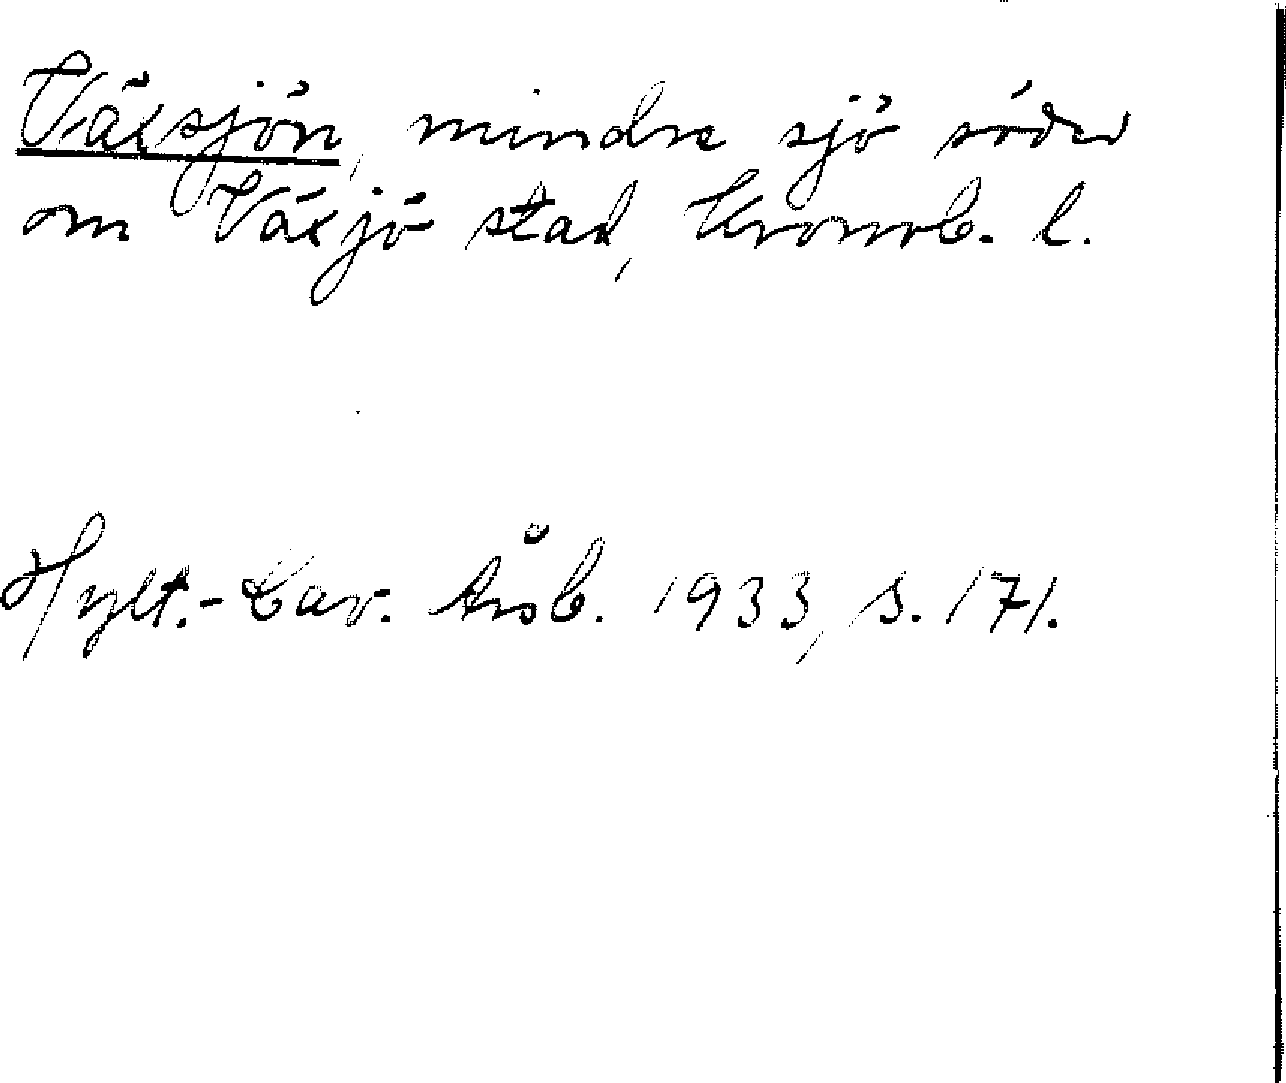 Växsjön, mindre sjö söder
om Växjö stad, Kronob. l.
Hylt.-Cav. Årsb. 1933, s. 171.